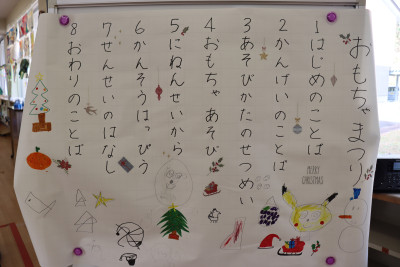 おもちゃまつり
1 はじめのことば
2 かんげいのことば
3 あそびかたのせつめい
4 おもちゃ あそび
5 にねんせいから
6 かんそうはっぴょう
7 せんせいのはなし
8 おわりのことば
MERRY CHRISTMAS